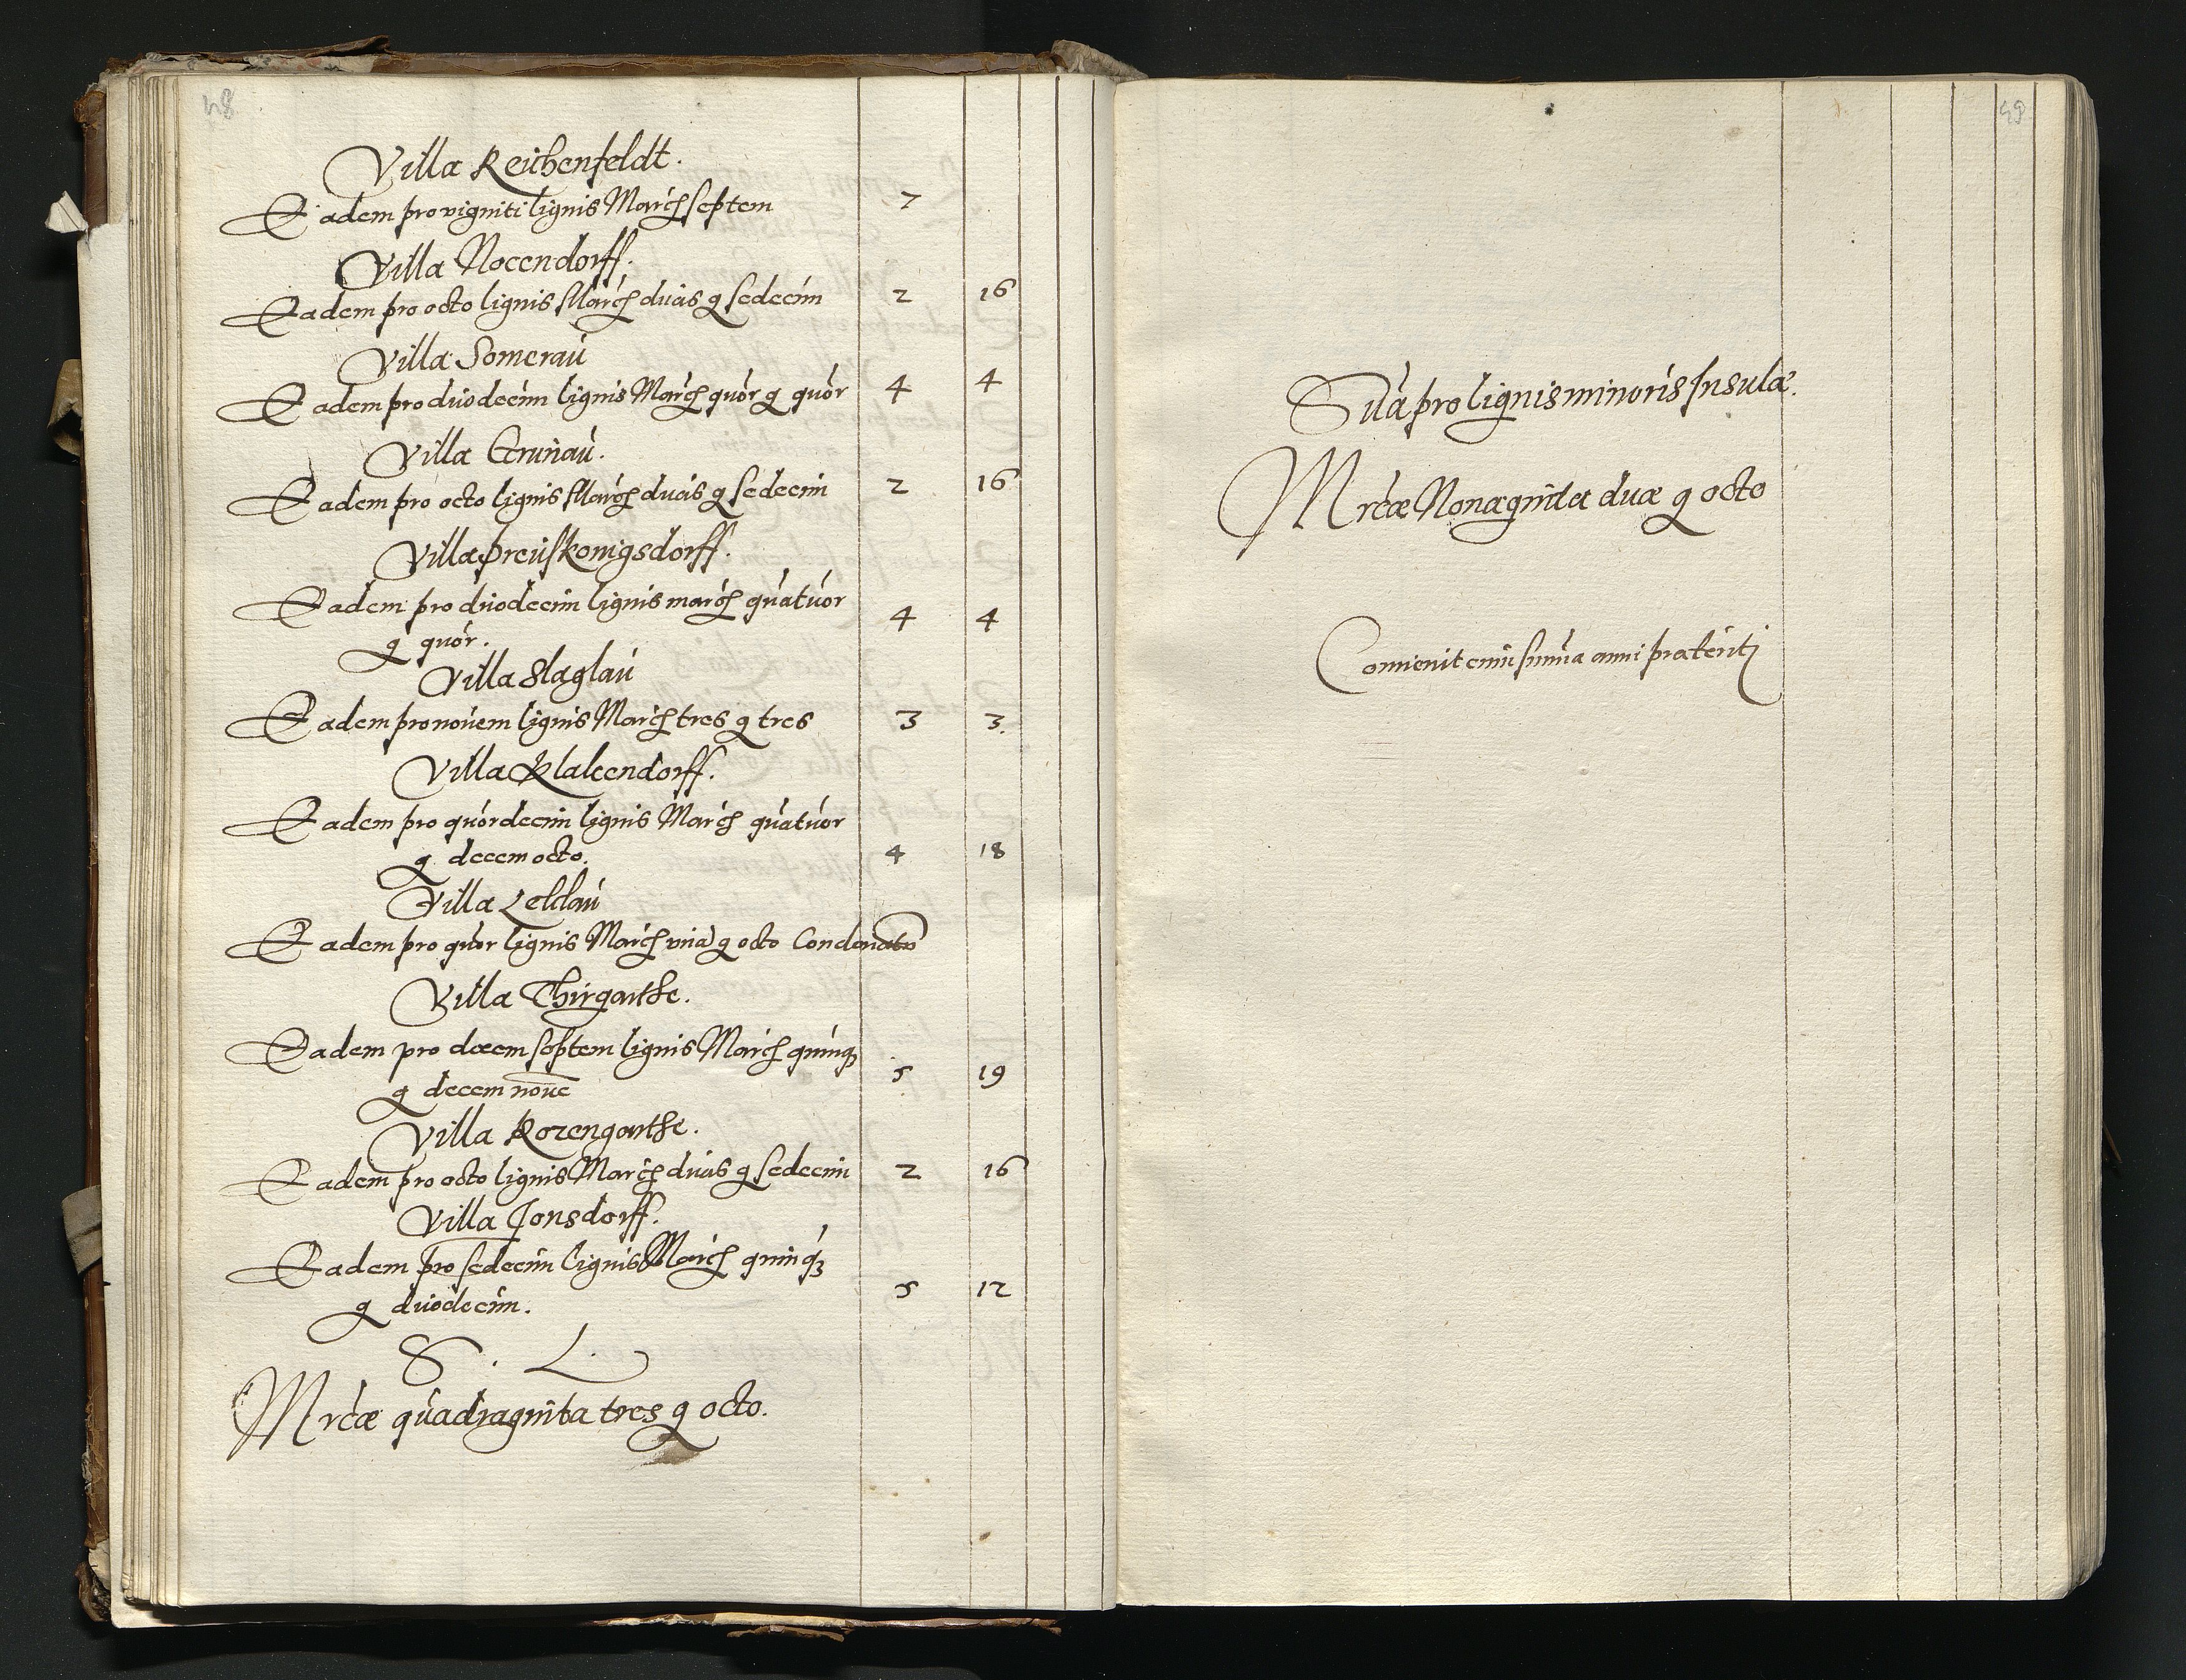 48
Villa Reichenfeldt.
Eadem pro vigniti lignis March septem 7
Villa Nocendorff.
Eadem pro octo lignis March duas g sedecim 2 16
Villa Somerau
Eadem pro duodecim lignis March quor g quor 4 4
Villa Grunau.
Eadem pro octo lignis March duas g sedecim 2 16
Villa preuskonigsdorff.
Eadem pro duodecim lignis march quatuor
g quor. 4 4
Villa Slaglau
Eadem pro novem lignis March tres g tres 3 3.
Villa Klalcendorff.
Eadem pro quordecim lignis March quatuor
g decem octo. 4 18
Villa Lelclau
Eadem pro quor lignis March una g octo Condonatu
Villa Thirgarthe.
Eadem pro decem septem lignis March quinq
g decem nove 5 19
Villa Rozengarthe.
Eadem pro octo lignis March duas g sedecim 2 16
Villa Jonsdorff.
Eadem pro sedecim lignis March quinq
g duodecim. 5 12
S. L.
Mrcæ quadraginta tres g octo.
49
Sua pro lignis minoris Insulæ.
Mrcæ Nonaginta duæ g octo
Convenit cum summa anni præteriti